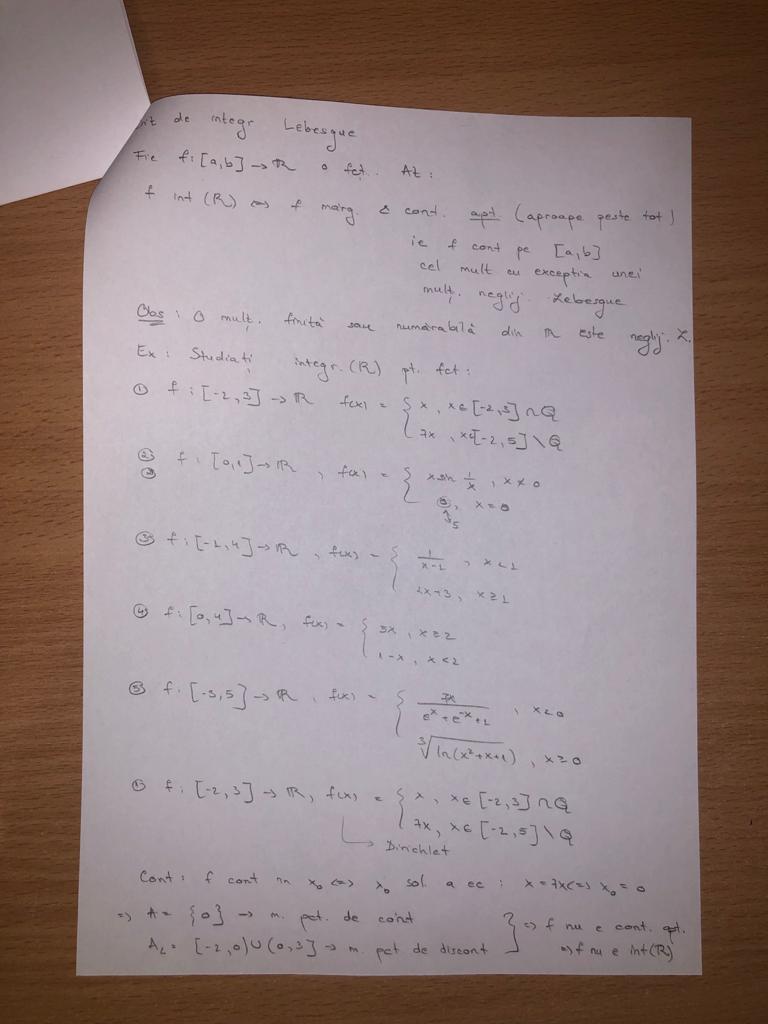 de integr Lebesgue
Fie f: [a,b] → ℝ o fcț.. At:
f int (R) ⇔ f mărg. & cont. apt. (aproape peste tot)
ie f cont pe [a,b]
cel mult cu exceptia unei
mulț. neglij. Lebesgue
Obs: O mulț. finită sau numărabilă din ℝ este neglij. L.
Ex: Studiați integr. (R) pt. fct:
① f: [-2,3] → ℝ f(x) = { x, x∈[-2,3]∩Q
7x, x∈[-2,5]\Q
② f: [0,1] → ℝ, f(x) = { x sin 1/x, x≠0
②
x=0
5
③ f: [-2,4] → ℝ, f(x) = { , x<1
2x+3, x≥1
④ f: [0,4] → ℝ, f(x) = { 3x, x≥2
1-x, x<2
⑤ f: [-3,5] → ℝ, f(x) = { 7x/(e^x+e^-x+1), x<0
∛ln(x²+x+1), x≥0
① f: [-2,3] → ℝ, f(x) = { x, x∈[-2,3]∩Q
7x, x∈[-2,5]\Q
↳ Dirichlet
Cont: f cont în x₀ ⇔ x₀ sol. a ec: x=7x ⇔ x₀=0
⇒ A = {0} → m. pct. de cont
= [-2,0)∪(0,3] → m. pct de discont } ⇒ f nu e cont. apt.
⇒ f nu e int(R)